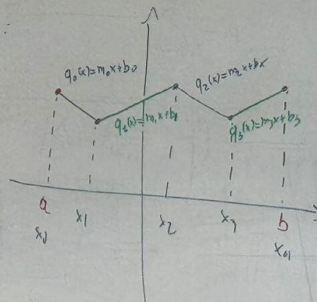 q₀(x)=m₀x+b₀
q₂(x)=m₂x+b₂
q₁(x)=m₁x+b₁
q₃(x)=m₃x+b₃
a
b
x₀
x₁
x₂
x₃
x₄